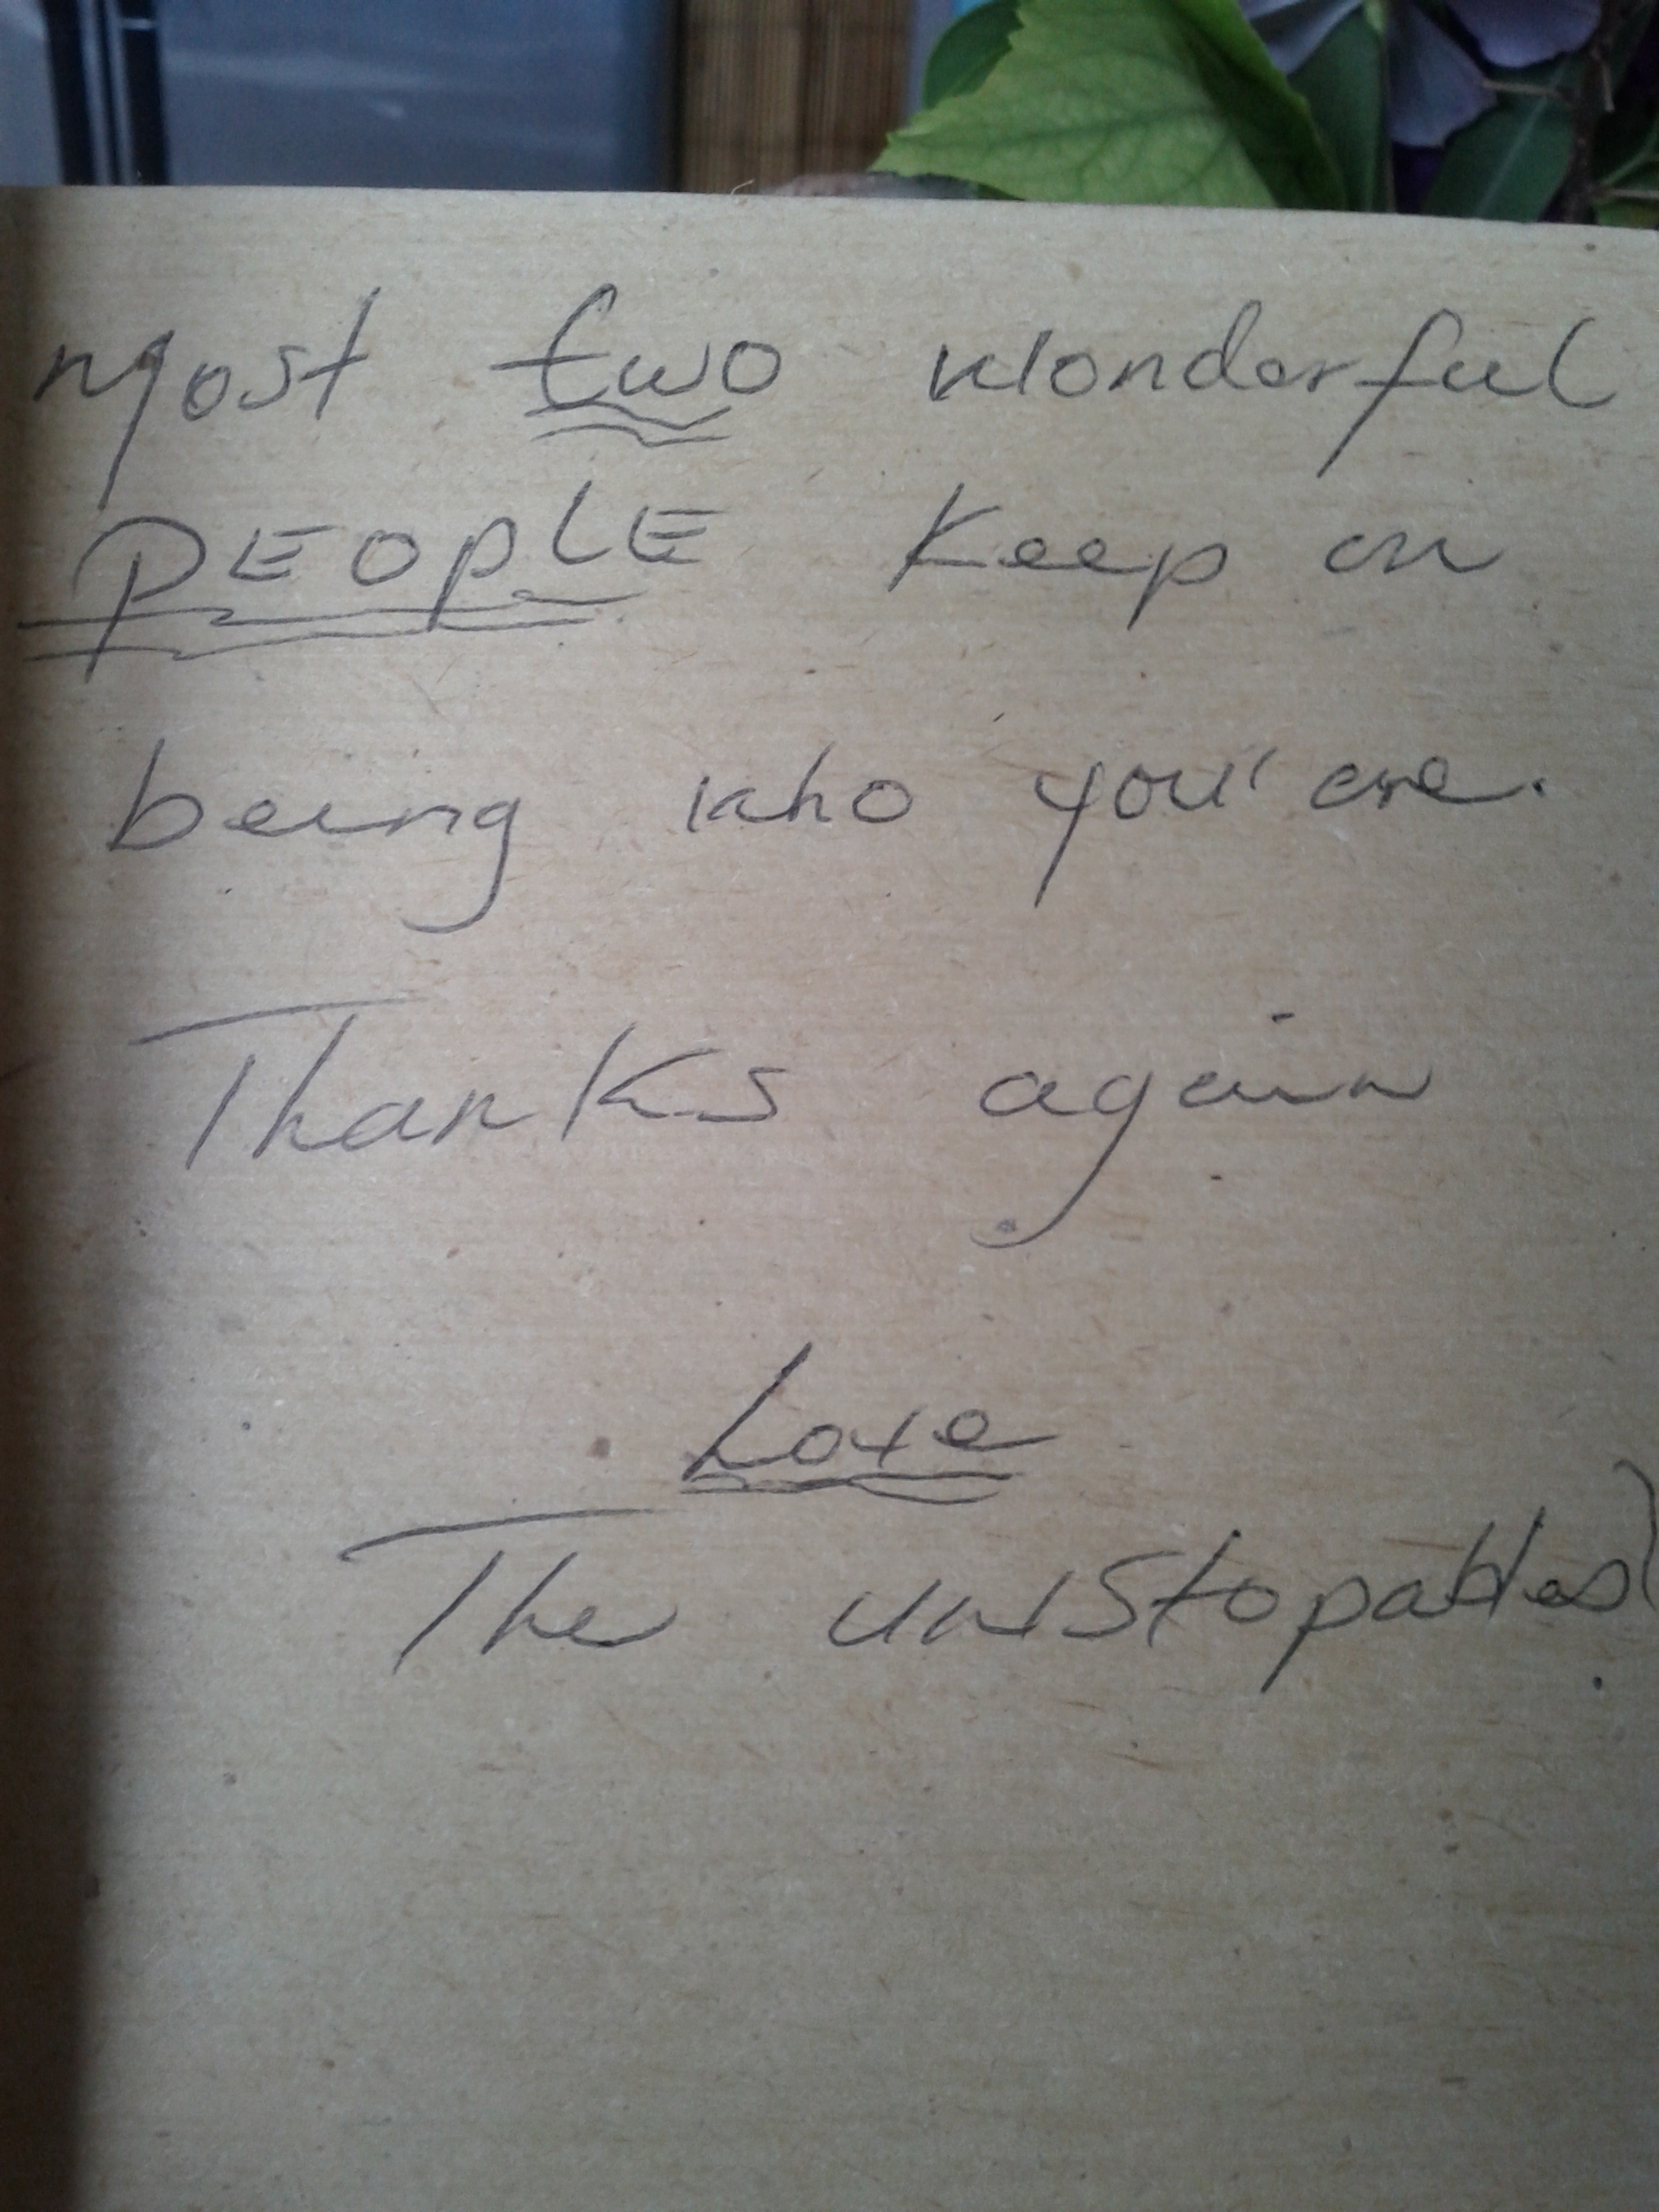 most two wonderful
PEOPLE Keep on
being who you' are.
Thanks again
Love
The unStopables